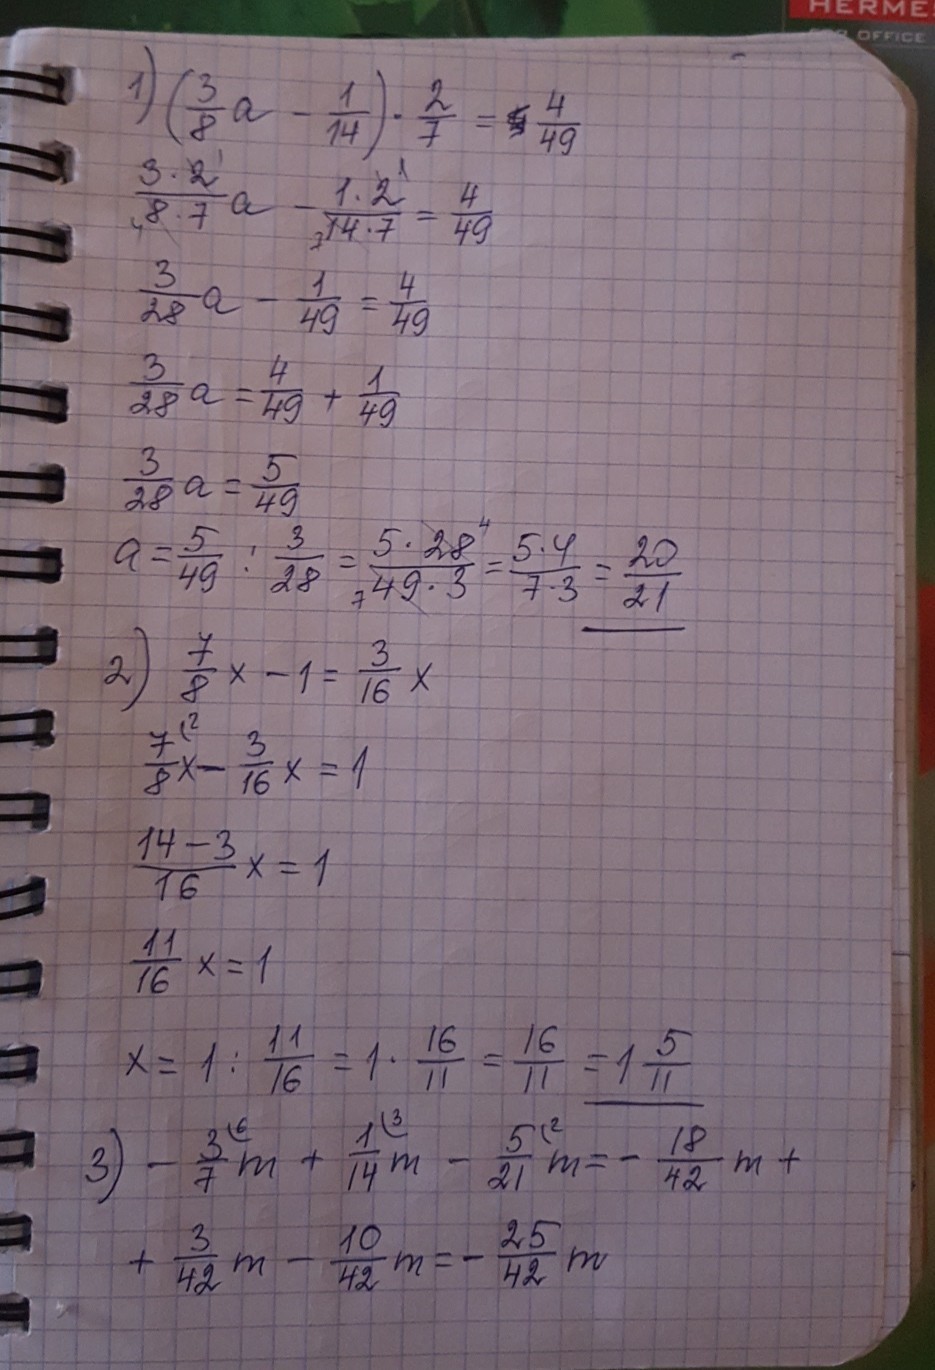 HERME
FOR OFFICE
1) (3/8 a - 1/14) · 2/7 = 4/49
3·2/8·7 a - 1·2/14·7 = 4/49
3/28 a - 1/49 = 4/49
3/28 a = 4/49 + 1/49
3/28 a = 5/49
a = 5/49 : 3/28 = 5·28/49·3 = 5·4/7·3 = 20/21
2) 7/8 x - 1 = 3/16 x
7/8 x - 3/16 x = 1
14-3/16 x = 1
11/16 x = 1
x = 1 : 11/16 = 1 · 16/11 = 16/11 = 1 5/11
3) - 3/7 m + 1/14 m - 5/21 m = - 18/42 m +
+ 3/42 m - 10/42 m = - 25/42 m